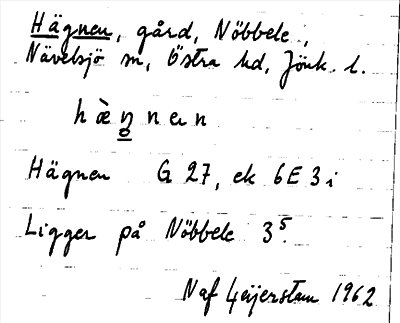 Hägnen, gård, Nöbbele,
Nävelsjö sn, Östra hd, Jönk. l.
hὲŋnən
Hägnen G 27, ek 6E3i
Ligger på Nöbbele 3⁵.
Naf Leijerstam 1962